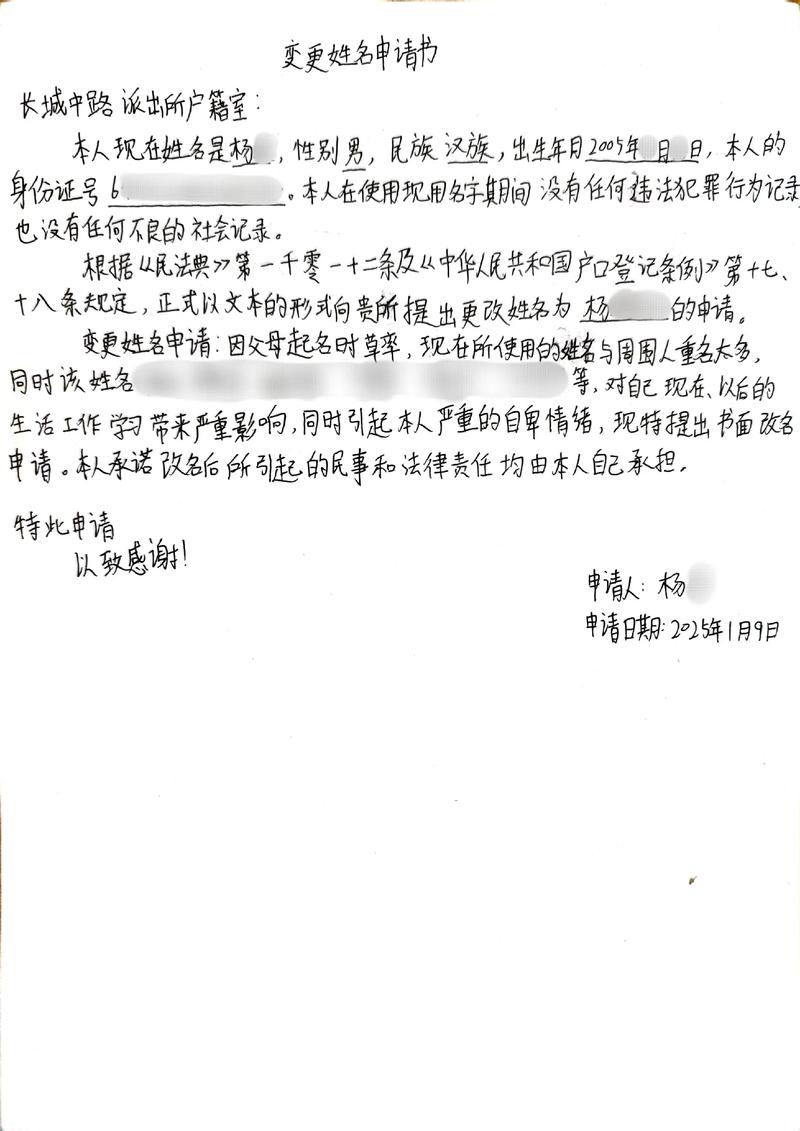 变更姓名申请书
长城中路派出所户籍室：
本人现在姓名是杨，性别男，民族汉族，出生年月2005年月日，本人的
身份证号6。本人在使用现用名字期间没有任何违法犯罪行为记录
也没有任何不良的社会记录。
根据《民法典》第一千零一十二条及《中华人民共和国户口登记条例》第十七、
十八条规定，正式以文本的形式向贵所提出更改姓名为杨的申请。
变更姓名申请：因父母起名时草率，现在所使用的姓名与周围人重名太多，
同时该姓名等，对自己现在、以后的
生活工作学习带来严重影响，同时引起本人严重的自卑情绪，现特提出书面改名
申请。本人承诺改名后所引起的民事和法律责任均由本人自己承担。
特此申请
以致感谢！
申请人：杨
申请日期：2025年1月9日